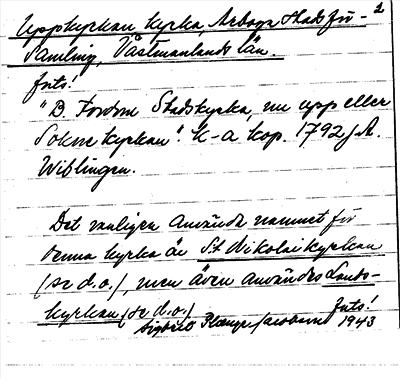 2
Uppkyrkan kyrka, Arboga stadsför-
samling, Västmanlands län.
forts!
"B. Fordom Stadskyrka, nu upp eller
Sokne kyrkan". K-a kop. 1792 J. A.
Wiblingen.
Det vanligen använda namnet för
denna kyrka är St Nikolai kyrkan
(se d.o.), men även användes Lands-
kyrkan (se d.o.) forts!
1943